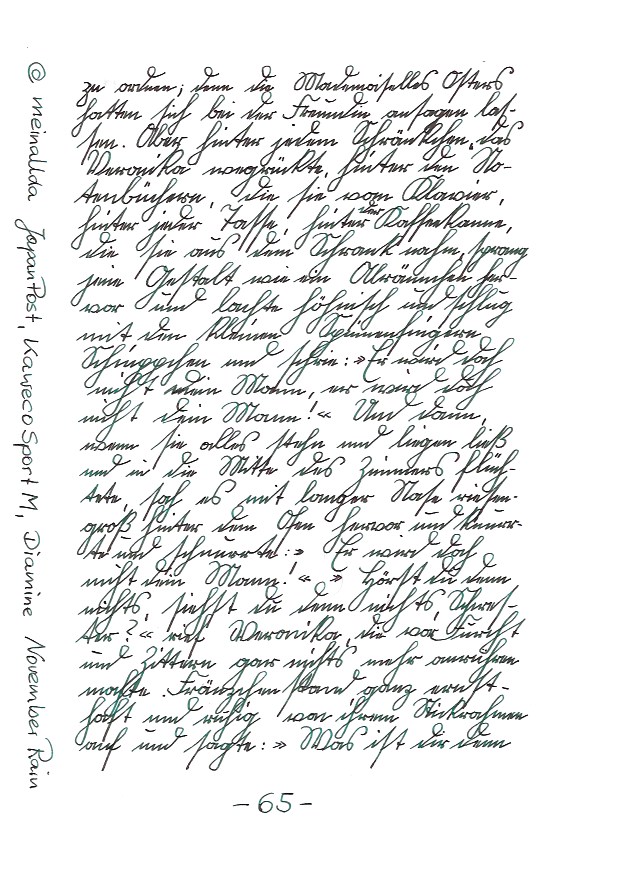 zu ordnen; denn die Mademoiselles Osters
hatten sich bei der Freundin ansagen las-
sen. Aber hinter jedem Schränkchen, das
Veronika wegrückte, hinter den No-
tenbüchern, die sie vom Klavier,
hinter jeder Tasse, hinter der Kaffeekanne,
die sie aus dem Schrank nahm, sprang
jene Gestalt wie ein Alräunchen her-
vor und lachte höhnisch und schlug
mit den kleinen Spinnenfingern
Schnippchen und schrie: »Er wird doch
nicht dein Mann, er wird doch
nicht dein Mann!« Und dann,
wenn sie alles stehn und liegen ließ
und in die Mitte des Zimmers flüch-
tete, sah es mit langer Nase riesen-
groß hinter dem Ofen hervor und knurr-
te und schnurrte: » Er wird doch
nicht dein Mann!« » Hörst du denn
nichts, siehst du denn nichts, Schwes-
ter?« rief Veronika, die vor Furcht
und Zittern gar nichts mehr anrühren
mochte. Fränzchen stand ganz ernst-
haft und ruhig von ihrem Stickrahmen
auf und sagte: » Was ist dir denn
- 65 -
@ meinallda JapanPost, Kaweco Sport M, Diamine November Rain